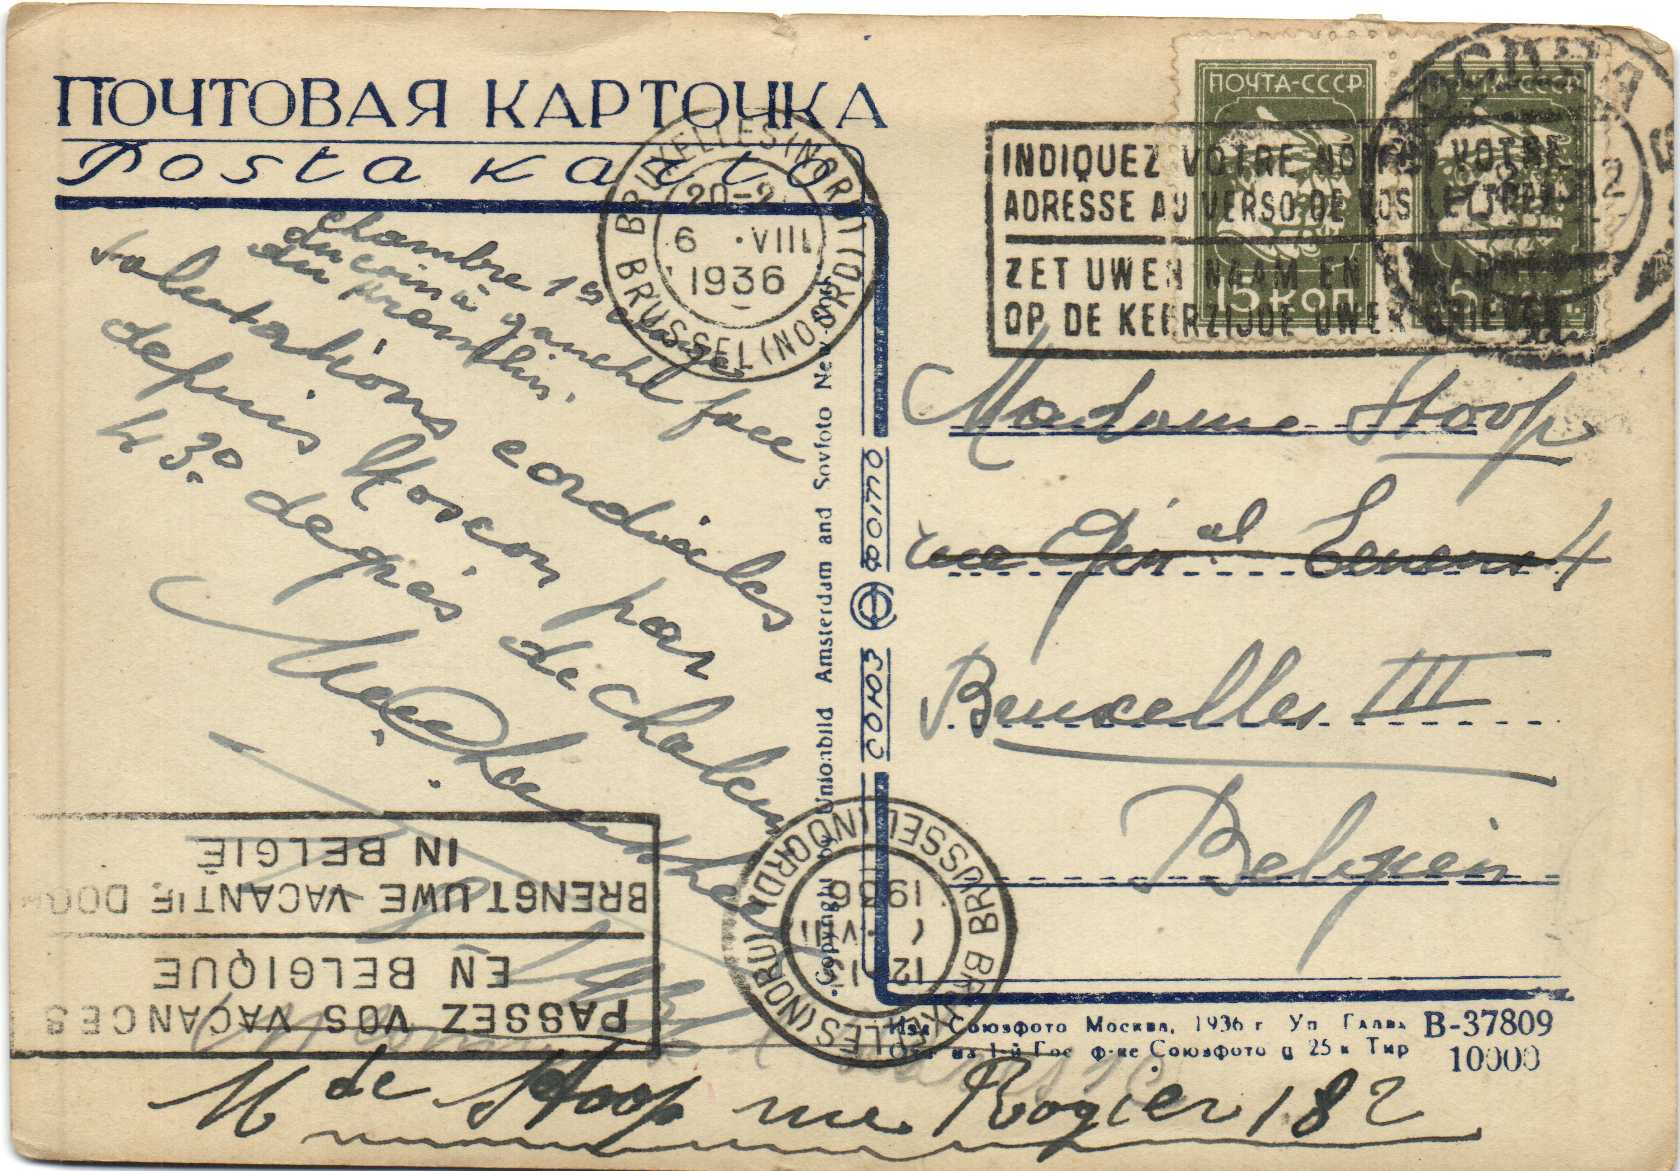 ПОЧТОВАЯ КАРТОЧКА
Posta karto
BRUXELLES (NORD)
20-2
6 ·VIII
1936
BRUSSEL (NOORD)
ПОЧТА-СССР
15 КОП
ПОЧТА-СССР
INDIQUEZ VOTRE NOM ET VOTRE
ADRESSE AU VERSO DE VOS LETTRES
ZET UWEN NAAM EN ADRES
OP DE KEERZIJDE UWER BRIEVEN
chambre 1er étage
du coin à gauche face
au Kremlin.
Salutations cordiales
depuis Moscou par
43° degrés de chaleur
Madame Stoop
rue Génal 4
Bruxelles III
Belgien
Copyright by Unionbild Amsterdam and Sovfoto New York
СОЮЗ ФОТО
IN BELGIË
BRENGT UWE VACANTIE DOOR
EN BELGIQUE
PASSEZ VOS VACANCES
BRUXELLES (NORD)
12
VIII
1936
BRUSSEL (NOORD)
Изд Союзфото Москва, 1936 г Уп Главл В-37809
Отп на 1-й Гос ф-ке Союзфото ц 25 к Тир 10000
Mde Stoop rue Rogier 182